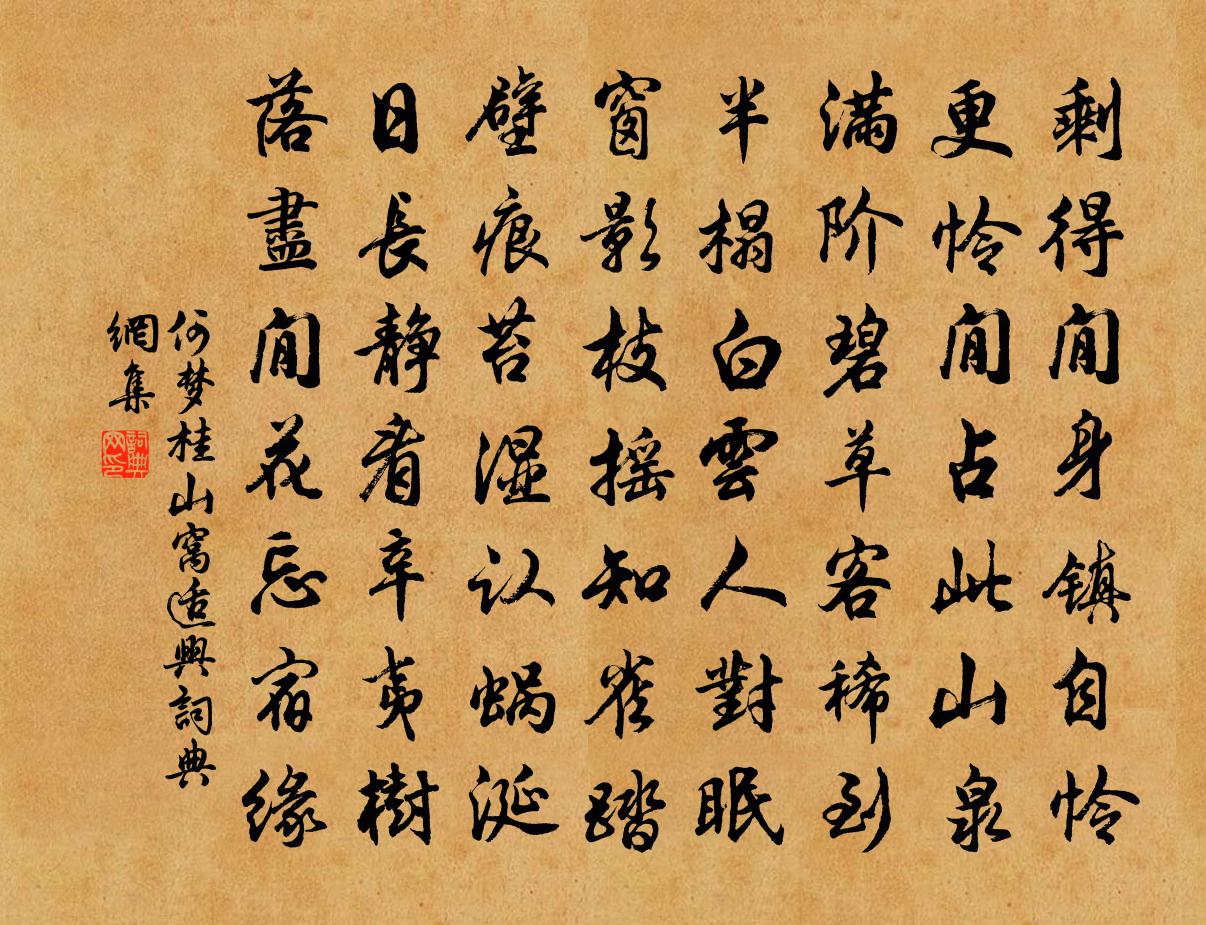 剩得閒身镇自怜
更怜閒占此山泉
满阶碧草客稀到
半榻白雲人對眠
窗影枝摇知雀踏
壁痕苔湿认蜗涎
日長靜看辛夷樹
落盡閒花忘宿缘
何梦桂山窝适興詞典
網集
詞典
网印